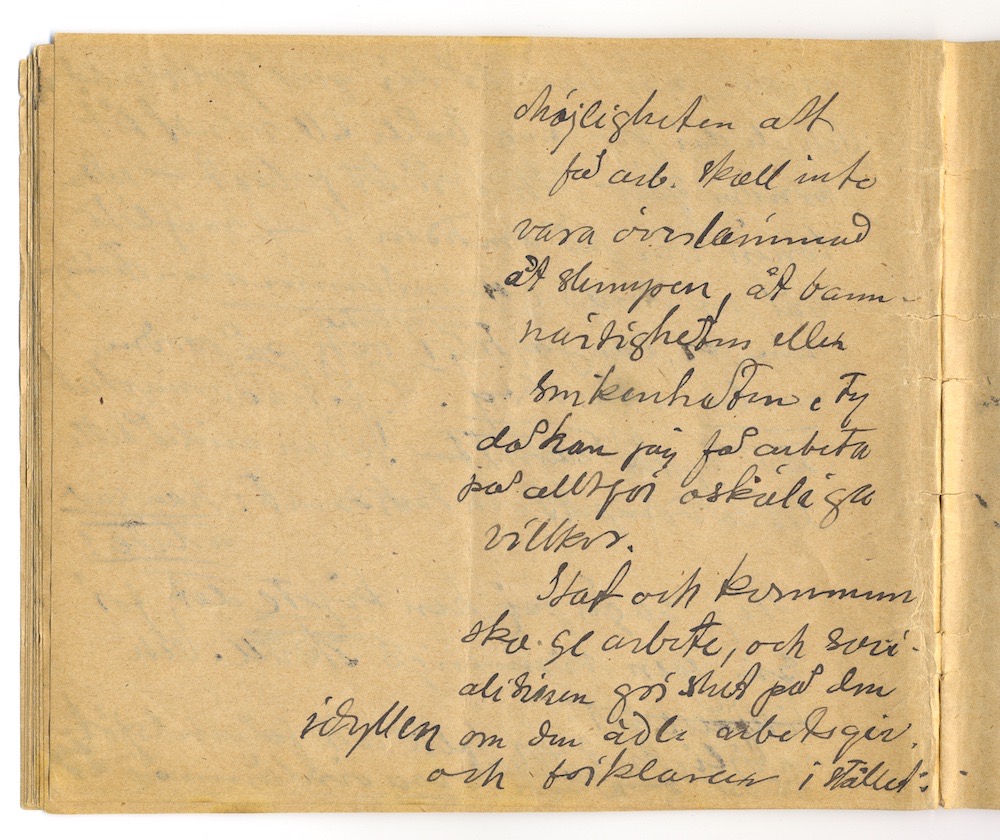 Möjligheten att
få arb. skall inte
vara överlämnad
åt slumpen, åt barm-
härtigheten eller
snikenheten, ty
då kan jag få arbeta
på alltför oskäliga
villkor.
Stat och kommun
ska ge arbete, och soci-
alismen gör slut på den
idyllen om den ädle arbetsgiv.
och förklarar i stället: